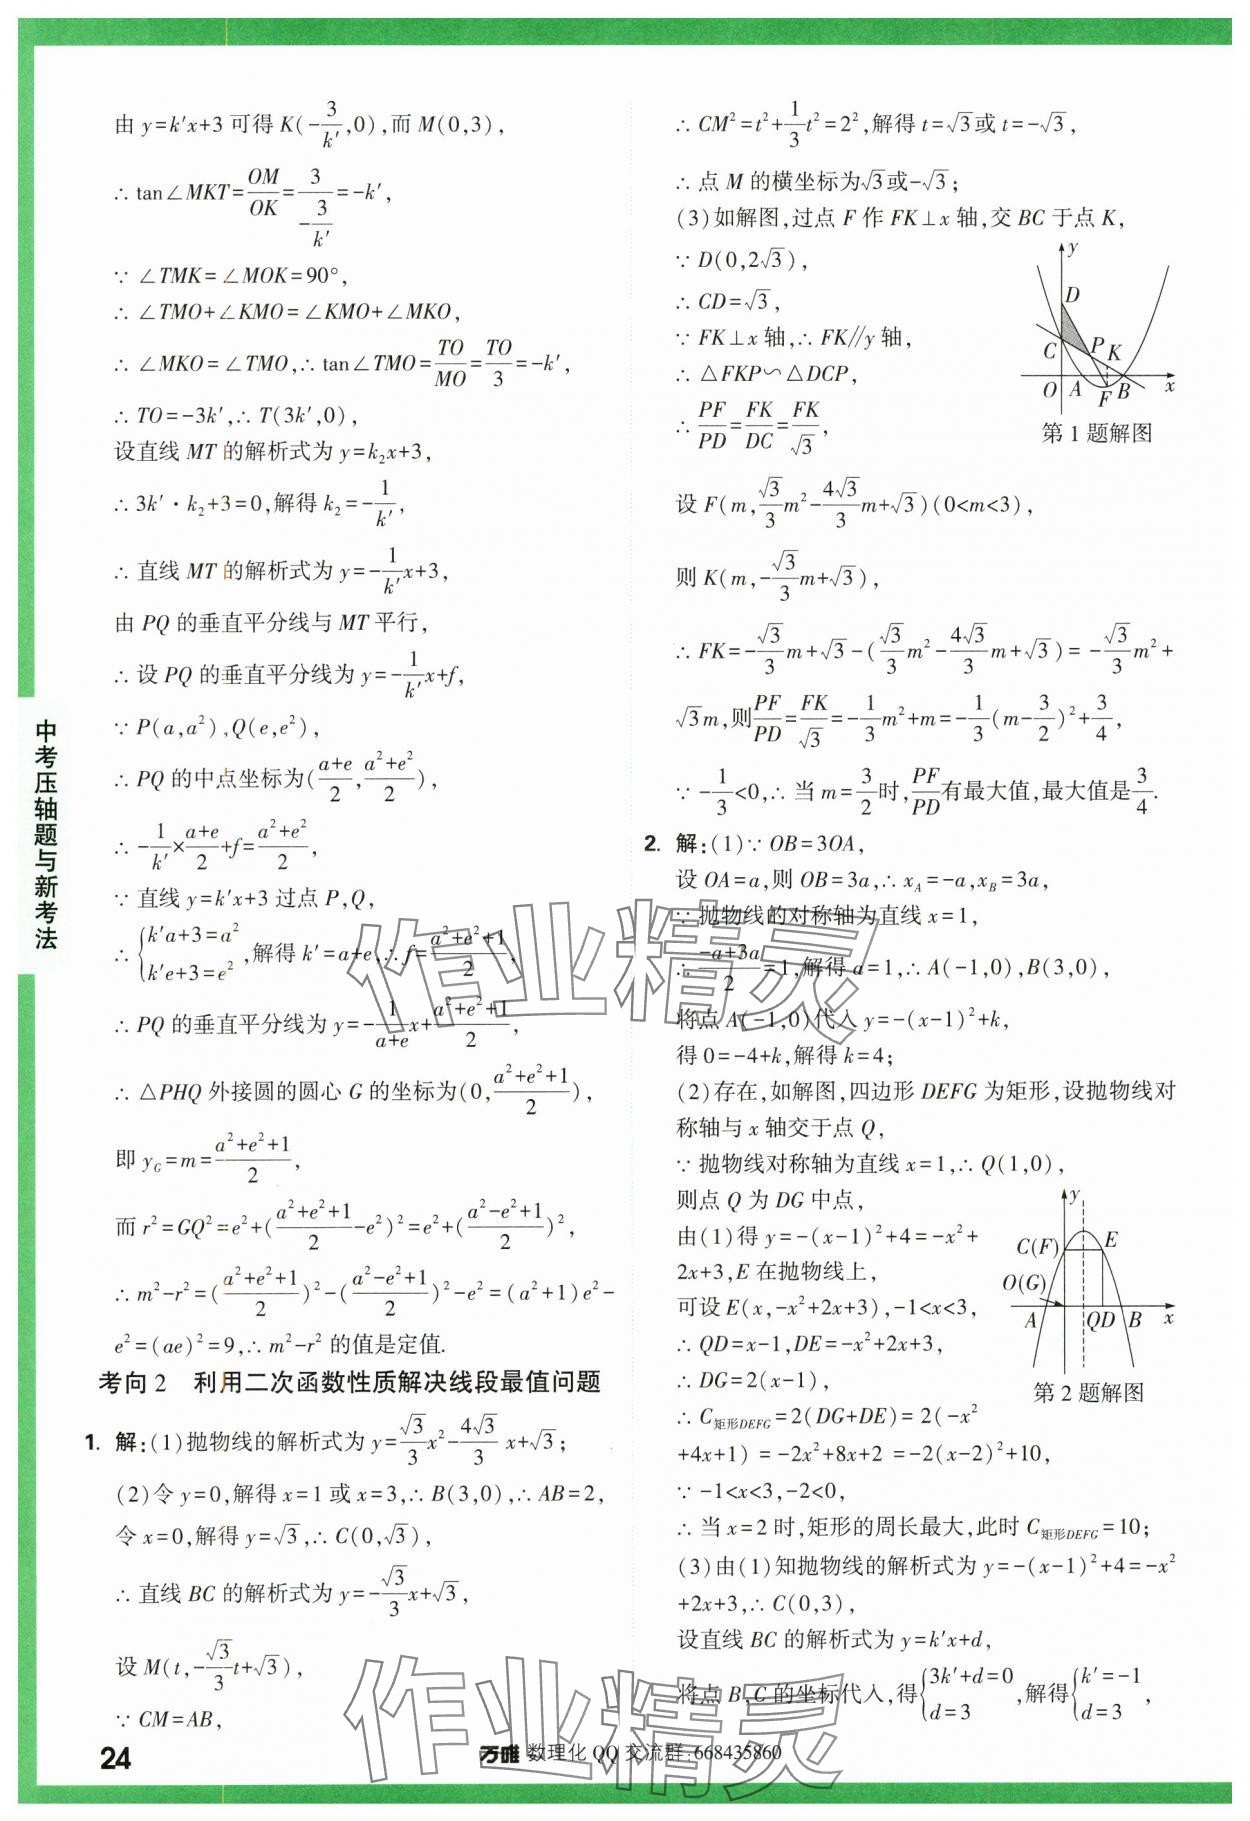 由 y=k′x+3 可得 K(-3/k′,0),而 M(0,3),
∴ tan∠MKT=OM/OK=3/(-3/k′)=-k′,
∵ ∠TMK=∠MOK=90°,
∴ ∠TMO+∠KMO=∠KMO+∠MKO,
∴ ∠MKO=∠TMO,∴ tan∠TMO=TO/MO=TO/3=-k′,
∴ TO=-3k′,∴ T(3k′,0),
设直线 MT 的解析式为 y=k₂x+3,
∴ 3k′·k₂+3=0,解得 k₂=-1/k′,
∴ 直线 MT 的解析式为 y=-1/k′x+3,
由 PQ 的垂直平分线与 MT 平行,
∴ 设 PQ 的垂直平分线为 y=-1/k′x+f,
∵ P(a,a²),Q(e,e²),
∴ PQ 的中点坐标为((a+e)/2,(a²+e²)/2),
∴ -1/k′×(a+e)/2+f=(a²+e²)/2,
∵ 直线 y=k′x+3 过点 P,Q,
∴ {k′a+3=a²
k′e+3=e² ,解得 k′=a+e,∴ f=(a²+e²+1)/2,
∴ PQ 的垂直平分线为 y=-1/(a+e)x+(a²+e²+1)/2,
∴ △PHQ 外接圆的圆心 G 的坐标为(0,(a²+e²+1)/2),
即 y_G=m=(a²+e²+1)/2,
而 r²=GQ²=e²+((a²+e²+1)/2-e²)²=e²+((a²-e²+1)/2)²,
∴ m²-r²=((a²+e²+1)/2)²-((a²-e²+1)/2)²-e²=(a²+1)e²-
e²=(ae)²=9,∴ m²-r² 的值是定值.
考向 2 利用二次函数性质解决线段最值问题
1. 解:(1)抛物线的解析式为 y=√3/3x²-4√3/3 x+√3;
(2)令 y=0,解得 x=1 或 x=3,∴ B(3,0),∴ AB=2,
令 x=0,解得 y=√3,∴ C(0,√3),
∴ 直线 BC 的解析式为 y=-√3/3x+√3,
设 M(t,-√3/3t+√3),
∵ CM=AB,
∴ CM²=t²+1/3t²=2²,解得 t=√3或 t=-√3,
∴ 点 M 的横坐标为√3或-√3;
(3)如解图,过点 F 作 FK⊥x 轴,交 BC 于点 K,
∵ D(0,2√3),
∴ CD=√3,
∵ FK⊥x 轴,∴ FK∥y 轴,
∴ △FKP∽△DCP,
∴ PF/PD=FK/DC=FK/√3,
y
D
C
P
K
O
A
F
B
x
第 1 题解图
设 F(m,√3/3m²-4√3/3m+√3)(0<m<3),
则 K(m,-√3/3m+√3),
∴ FK=-√3/3m+√3-(√3/3m²-4√3/3m+√3)=-√3/3m²+
√3m,则PF/PD=FK/√3=-1/3m²+m=-1/3(m-3/2)²+3/4,
∵ -1/3<0,∴ 当 m=3/2时,PF/PD有最大值,最大值是3/4.
2. 解:(1)∵ OB=3OA,
设 OA=a,则 OB=3a,∴ x_A=-a,x_B=3a,
∵ 抛物线的对称轴为直线 x=1,
∴ (-a+3a)/2=1,解得 a=1,∴ A(-1,0),B(3,0),
将点 A(-1,0)代入 y=-(x-1)²+k,
得 0=-4+k,解得 k=4;
(2)存在,如解图,四边形 DEFG 为矩形,设抛物线对
称轴与 x 轴交于点 Q,
∵ 抛物线对称轴为直线 x=1,∴ Q(1,0),
则点 Q 为 DG 中点,
由(1)得 y=-(x-1)²+4=-x²+
2x+3,E 在抛物线上,
可设 E(x,-x²+2x+3),-1<x<3,
∴ QD=x-1,DE=-x²+2x+3,
∴ DG=2(x-1),
∴ C矩形DEFG=2(DG+DE)=2(-x²
+4x+1)=-2x²+8x+2=-2(x-2)²+10,
y
C(F)
E
O(G)
A
QD
B
x
第 2 题解图
∵ -1<x<3,-2<0,
∴ 当 x=2 时,矩形的周长最大,此时 C矩形DEFG=10;
(3)由(1)知抛物线的解析式为 y=-(x-1)²+4=-x²
+2x+3,∴ C(0,3),
设直线 BC 的解析式为 y=k′x+d,
将点 B,C 的坐标代入,得{3k′+d=0
d=3 ,解得{k′=-1
d=3 ,
中考压轴题与新考法
24
万唯 数理化 QQ 交流群:668435860
作业精灵
作业精灵